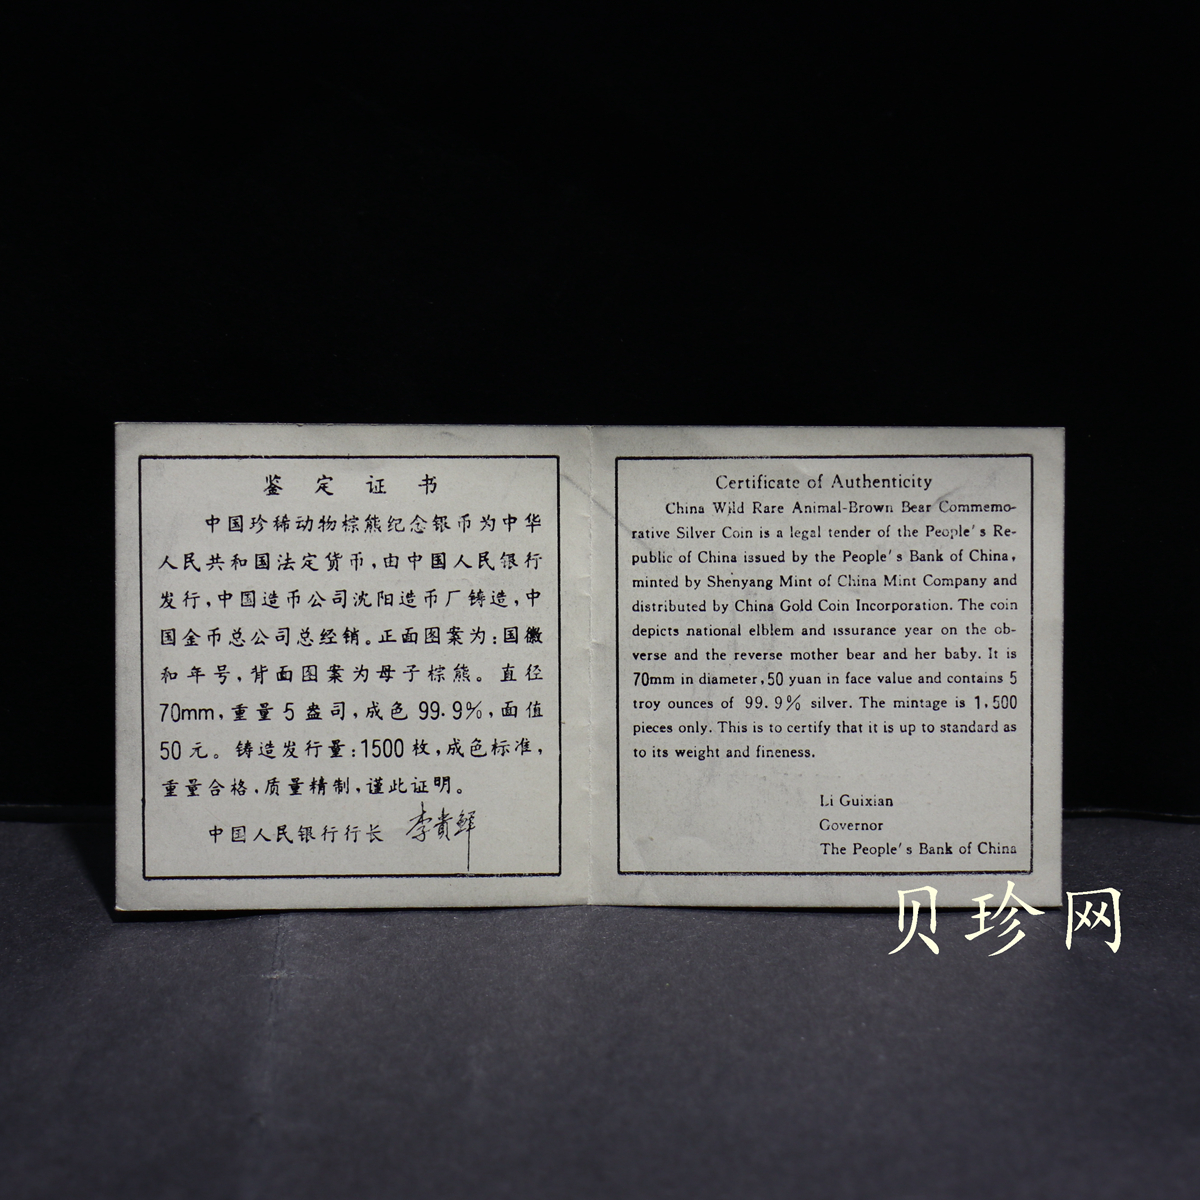 鉴定证书
中国珍稀动物棕熊纪念银币为中华
人民共和国法定货币,由中国人民银行
发行,中国造币公司沈阳造币厂铸造,中
国金币总公司总经销。正面图案为:国徽
和年号,背面图案为母子棕熊。直径
70mm,重量5盎司,成色99.9%,面值
50元。铸造发行量:1500枚,成色标准,
重量合格,质量精制,谨此证明。
中国人民银行行长 李贵鲜
Certificate of Authenticity
China Wild Rare Animal-Brown Bear Commemo-
rative Silver Coin is a legal tender of the People's Re-
public of China issued by the People's Bank of China,
minted by Shenyang Mint of China Mint Company and
distributed by China Gold Coin Incorporation. The coin
depicts national elblem and issurance year on the ob-
verse and the reverse mother bear and her baby. It is
70mm in diameter, 50 yuan in face value and contains 5
troy ounces of 99.9% silver. The mintage is 1,500
pieces only. This is to certify that it is up to standard as
to its weight and fineness.
Li Guixian
Governor
The People's Bank of China
贝珍网